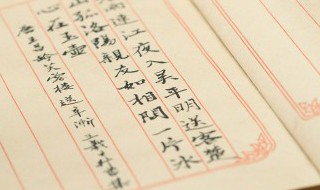 雨連江夜入吳平明送客楚
山孤洛陽親友如相問一片冰
心在玉壺
唐王昌齡芙蓉樓送辛漸